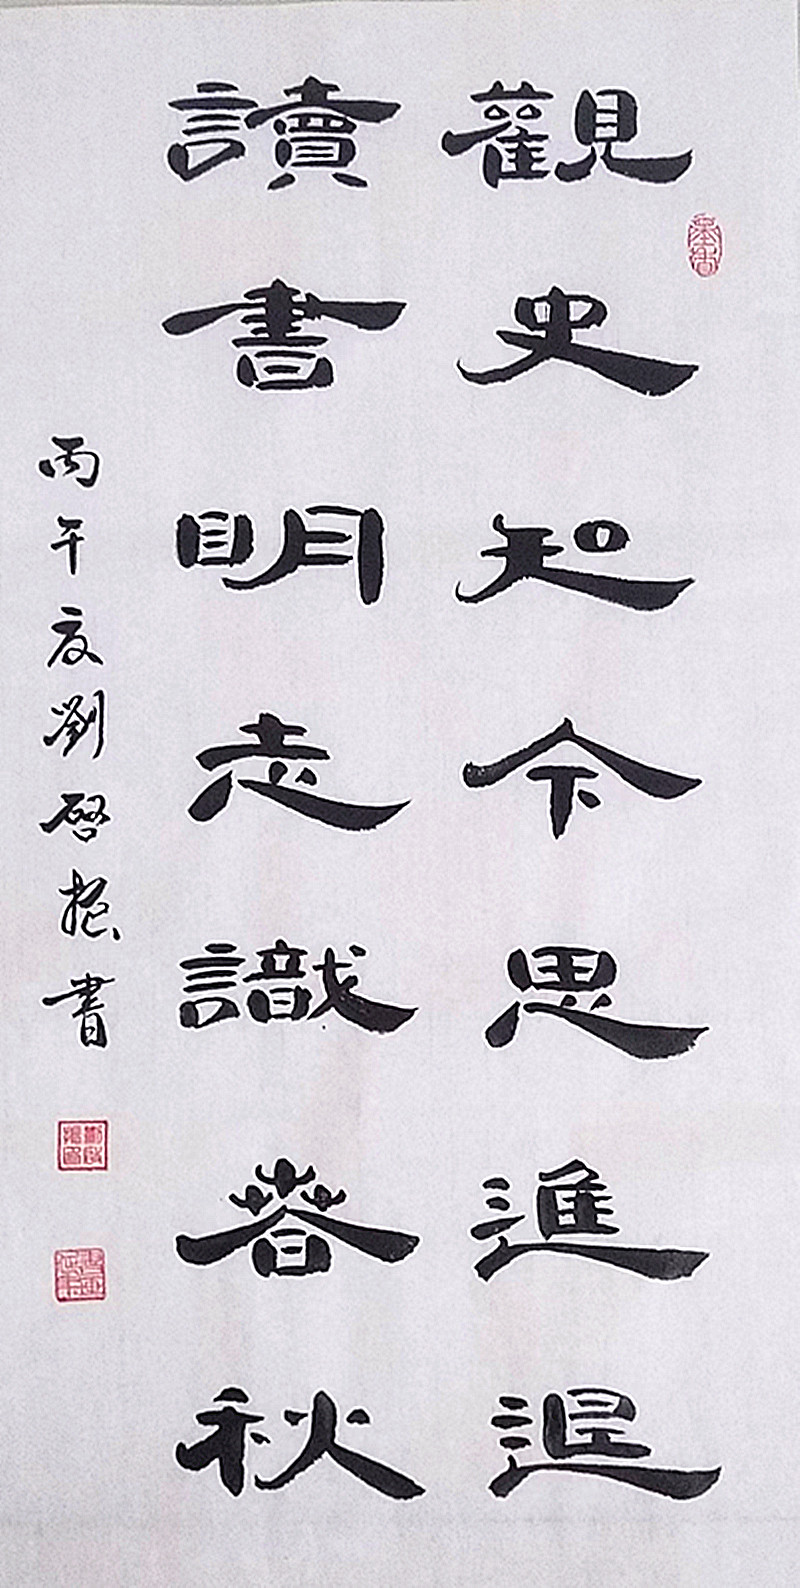 觀史知今思進退
讀書明志識春秋
丙午夏劉啓振書